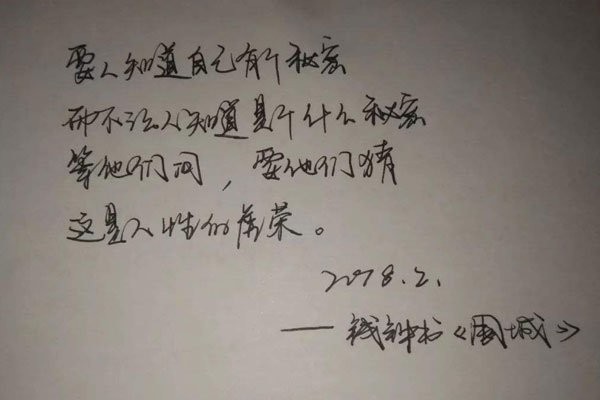 要人知道自己有个秘密
而不让人知道是个什么秘密
等他们问，要他们猜
这是人性的虚荣。
2018.2.
——钱钟书《围城》